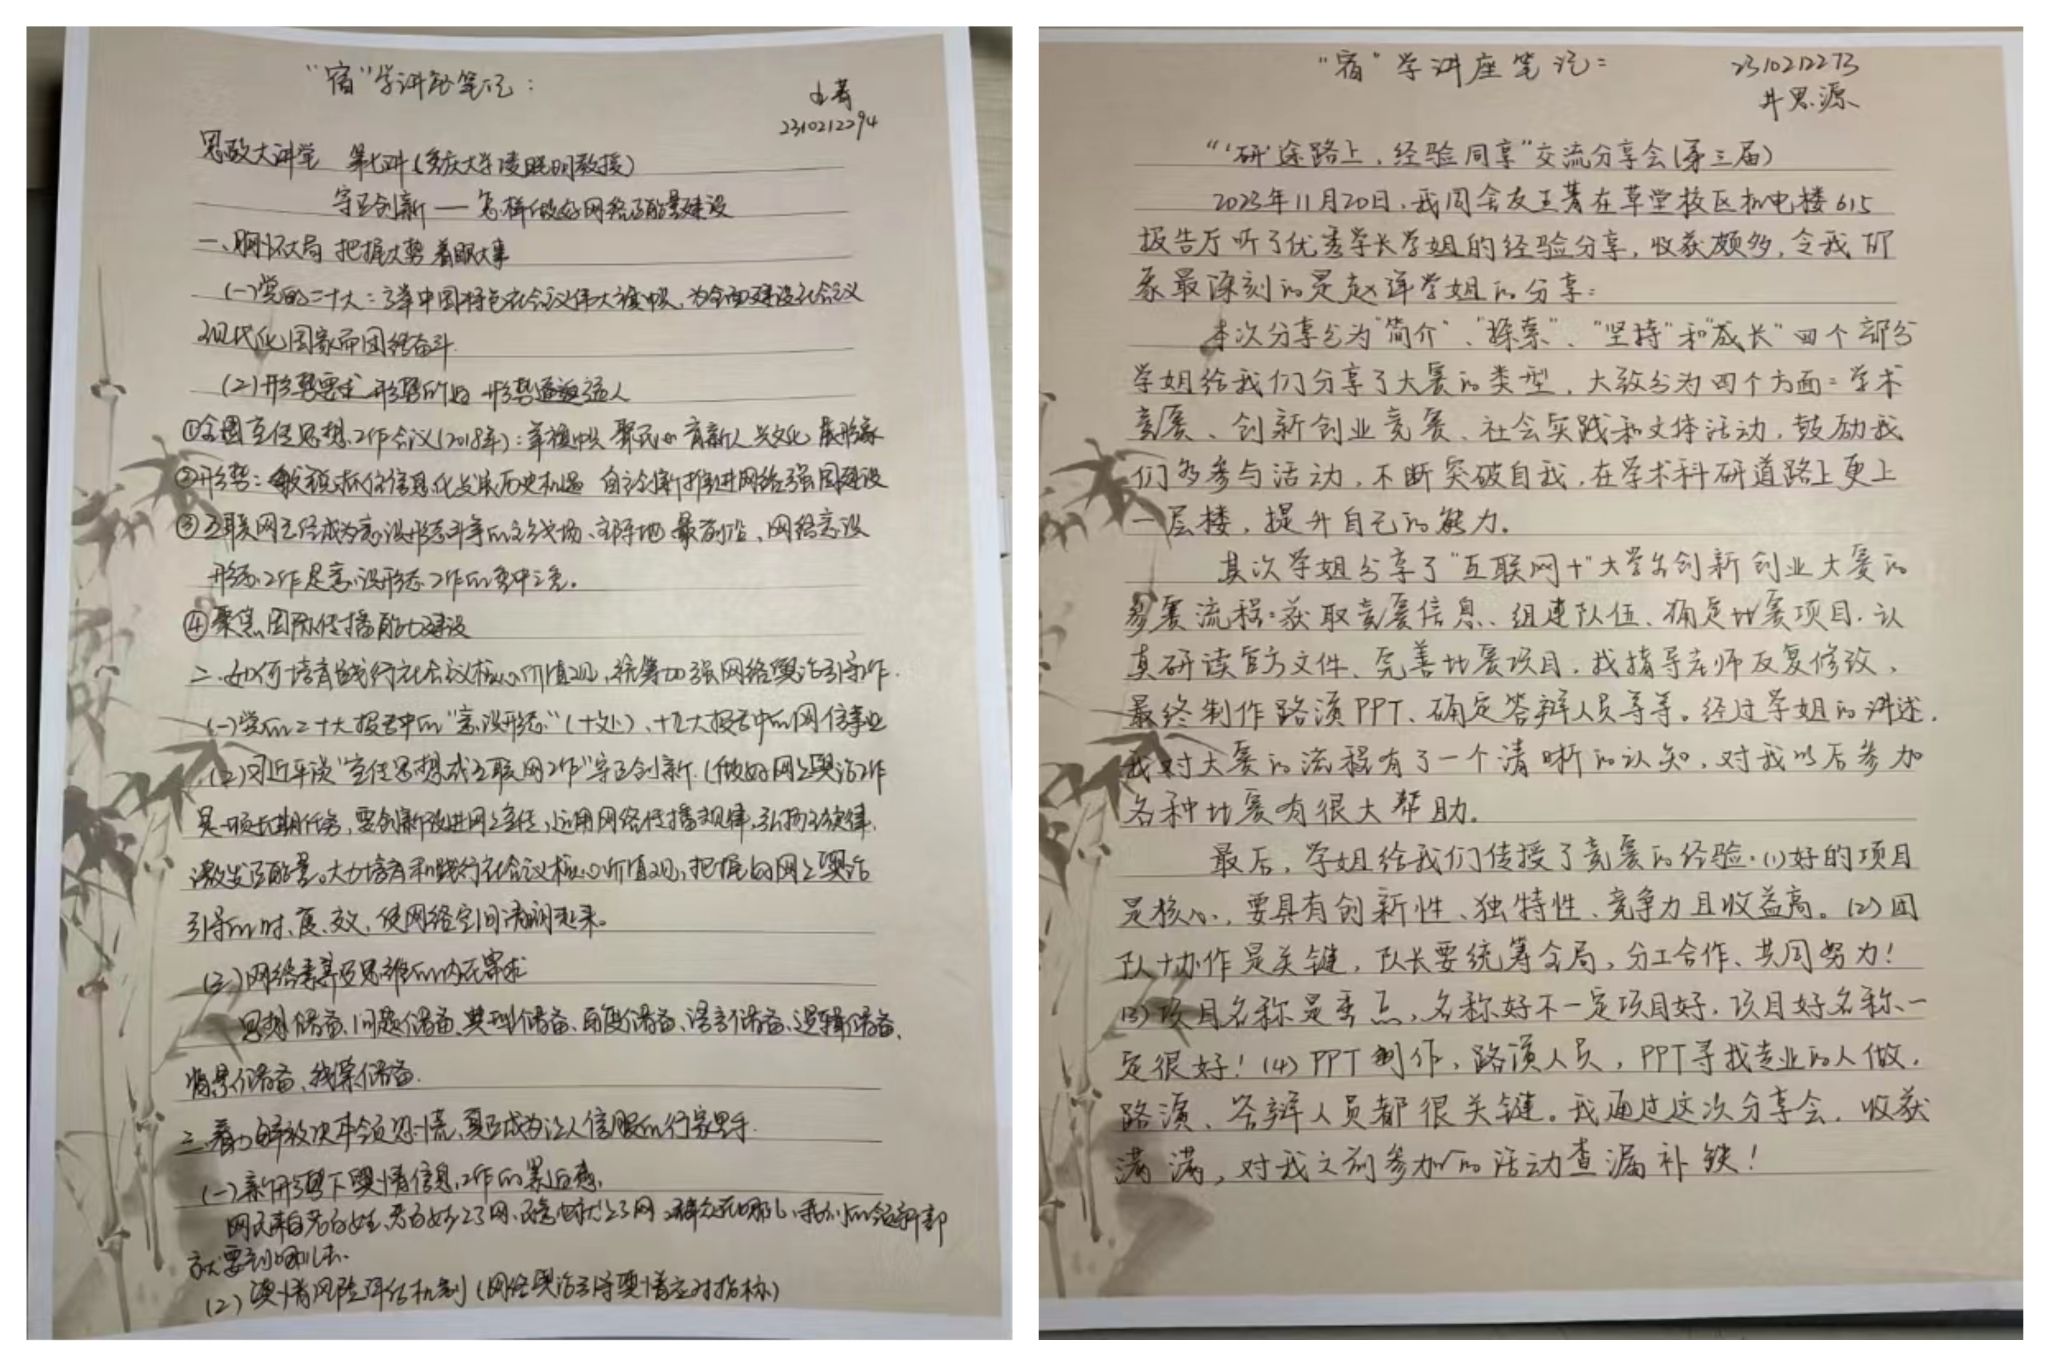 "宿"学讲座笔记：
王菁
2310212294
思政大讲堂 第七讲(重庆大学凌晓明教授)
守正创新 — 怎样做好网络正能量建设
一、胸怀大局 把握大势 着眼大事
(一)党的二十大：高举中国特色社会主义伟大旗帜，为全面建设社会主义
现代化国家而团结奋斗.
(二)形势要求 形势所迫 形势逼人
①全国宣传思想工作会议(2018年)：举旗帜 聚民心 育新人 兴文化 展形象
②形势：敏锐抓住信息化发展历史机遇 自主创新推进网络强国建设
③互联网已经成为意识形态斗争的主战场、主阵地、最前沿、网络意识
形态工作是意识形态工作的重中之重。
④聚焦国际传播能力建设
二、如何培育践行社会主义核心价值观，统筹加强网络舆论引导工作.
(一)党的二十大报告中的"意识形态"(十处)、十九大报告中的网信事业
(二)习近平谈"宣传思想或互联网工作"守正创新.(做好网上舆论工作
是一项长期任务，要创新改进网上宣传，运用网络传播规律，弘扬主旋律，
激发正能量。大力培育和践行社会主义核心价值观，把握好网上舆论
引导的时、度、效，使网络空间清朗起来。
(三)网络素养及思维的内在需求
思想储备、问题储备、典型储备、角度储备、语言储备、逻辑储备、
背景储备、线索储备.
三、着力解放决本领恐慌，真正成为让人信服的行家里手.
(一)新形势下舆情信息工作的紧迫感.
网民来自老百姓，老百姓上了网，民意也就上了网.群众在哪儿，我们的领导干部
就要到哪儿去.
(二)舆情风险评估机制(网络舆论引导舆情应对指标)
"宿"学讲座笔记：
2310212273
井思源
"'研'途路上，经验同享"交流分享会(第三届)
2023年11月20日，我同舍友王菁在草堂校区机电楼615
报告厅听了优秀学长学姐的经验分享，收获颇多，令我印
象最深刻的是赵谭学姐的分享：
本次分享分为"简介"、"探索"、"坚持"和"成长"四个部分
学姐给我们分享了大赛的类型，大致分为四个方面：学术
竞赛、创新创业竞赛、社会实践和文体活动，鼓励我
们多参与活动，不断突破自我，在学术科研道路上更上
一层楼，提升自己的能力。
其次学姐分享了"互联网+"大学生创新创业大赛的
参赛流程：获取竞赛信息、组建队伍、确定比赛项目、认
真研读官方文件、完善比赛项目，找指导老师反复修改，
最终制作路演PPT、确定答辩人员等等。经过学姐的讲述，
我对大赛的流程有了一个清晰的认知，对我以后参加
各种比赛有很大帮助。
最后，学姐给我们传授了竞赛的经验.(1)好的项目
是核心，要具有创新性、独特性、竞争力且收益高。(2)团
队协作是关键，队长要统筹全局，分工合作、共同努力！
(3)项目名称是重点，名称好不一定项目好，项目好名称一
定很好！(4)PPT制作，路演人员，PPT寻找专业的人做，
路演、答辩人员都很关键。我通过这次分享会，收获
满满，对我之前参加的活动查漏补缺！